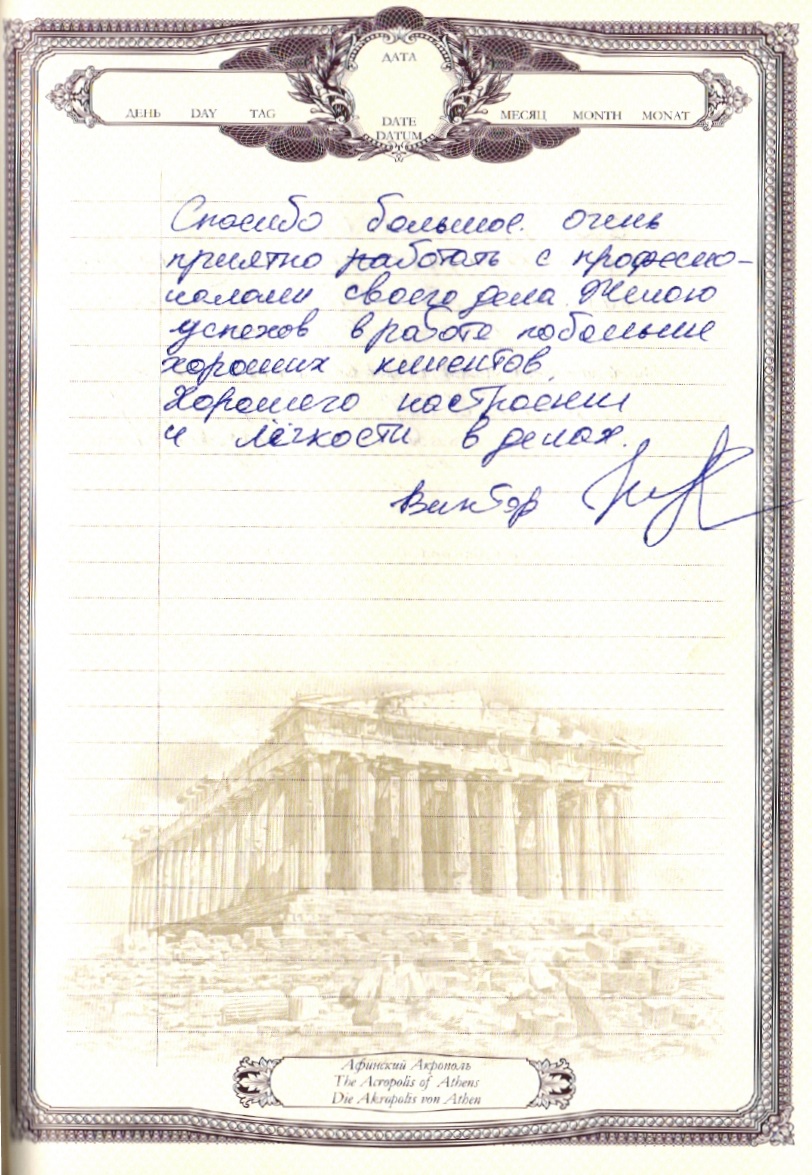 ДАТА
ДЕНЬ DAY TAG
DATE
МЕСЯЦ MONTH MONAT
DATUM
Спасибо большое. очень
приятно работать с професио-
налами своего дела. Желаю
успехов в работе побольше
хороших клиентов.
Хорошего настроения
и лёгкости в делах.
Виктор
Афинский Акрополь
The Acropolis of Athens
Die Akropolis von Athen